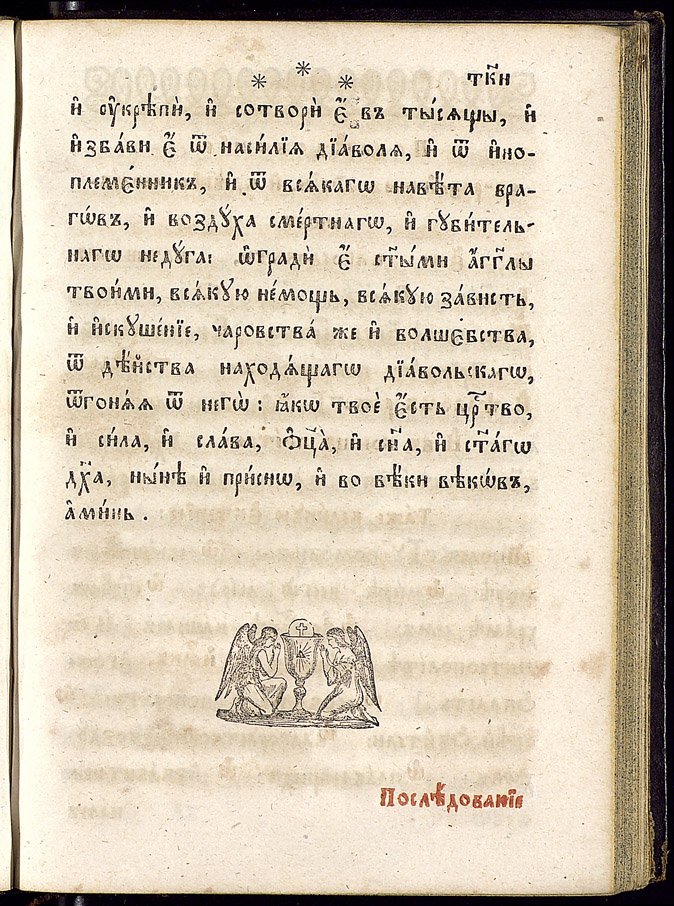 * * * тк҃и
и҆ ᲂу҆крѣпѝ, и҆ сотворѝ є҆̀ въ ты́сѧщы, и҆
и҆зба́ви є҆̀ ѿ наси́лїѧ дїа́волѧ, и҆ ѿ и҆но-
племе́нникъ, и҆ ѿ всѧ́кагѡ навѣ́та вра-
гѡ́въ, и҆ воздꙋ́ха сме́ртнагѡ, и҆ гꙋби́тель-
нагѡ недꙋ́га: ѡ҆градѝ є҆̀ ст҃ы́ми а҆́гг҃лы
твои́ми, всѧ́кꙋю не́мощь, всѧ́кꙋю за́висть,
и҆ и҆скꙋше́нїе, чаровства́ же и҆ волшєбства,
ѿ дѣ́йства находѧ́щагѡ дїа́вольскагѡ,
ѿгонѧ́ѧ ѿ негѡ̀: ꙗ҆́кѡ твоѐ є҆́сть црⷭ҇тво,
и҆ си́ла, и҆ сла́ва, ѻ҆ц҃а̀, и҆ сн҃а, и҆ ст҃а́гѡ
дх҃а, ны́нѣ и҆ при́снѡ, и҆ во вѣ́ки вѣкѡ́въ,
а҆ми́нь.
Послѣ́дованїе